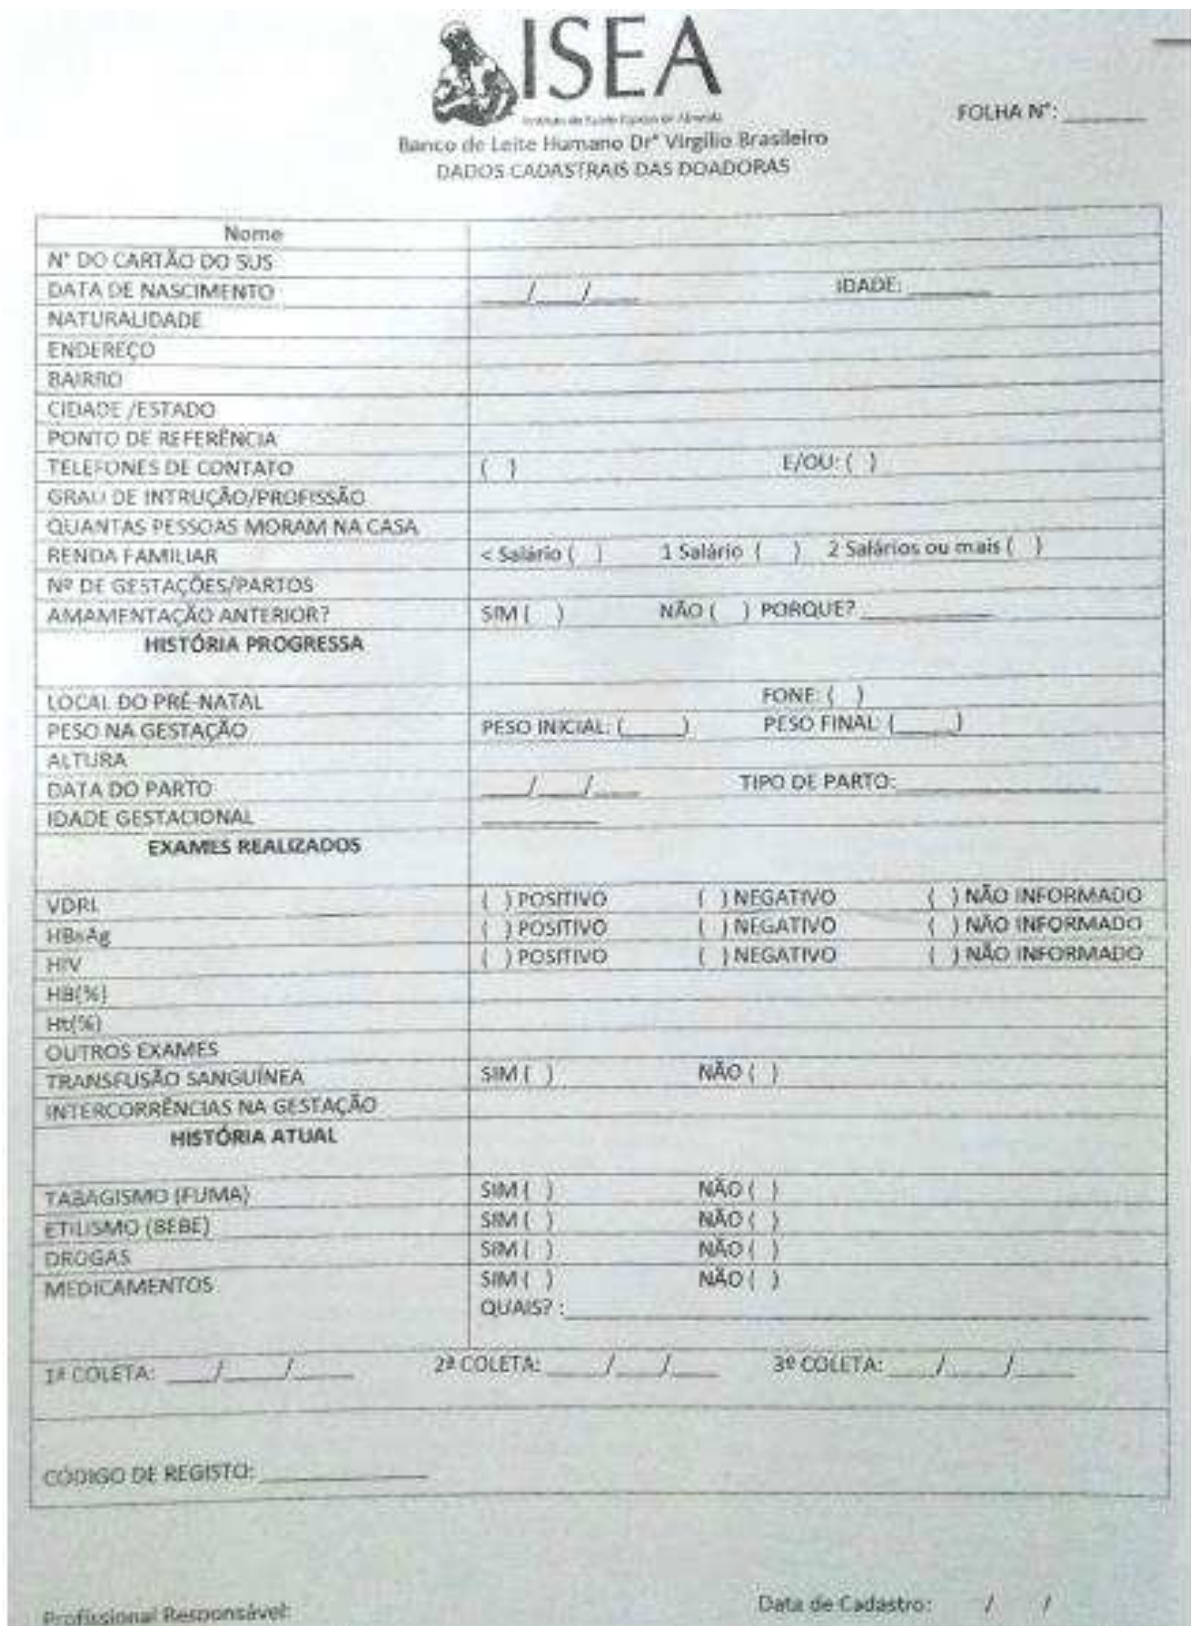 ISEA
Instituto de Saúde Elpídio de Almeida
FOLHA N°: ______
Banco de Leite Humano Dr° Virgílio Brasileiro
DADOS CADASTRAIS DAS DOADORAS
Nome
N° DO CARTÃO DO SUS
DATA DE NASCIMENTO ___/___/___ IDADE: ______
NATURALIDADE
ENDEREÇO
BAIRRO
CIDADE /ESTADO
PONTO DE REFERÊNCIA
TELEFONES DE CONTATO ( ) E/OU: ( )
GRAU DE INTRUÇÃO/PROFISSÃO
QUANTAS PESSOAS MORAM NA CASA
RENDA FAMILIAR < Salário ( ) 1 Salário ( ) 2 Salários ou mais ( )
Nº DE GESTAÇÕES/PARTOS
AMAMENTAÇÃO ANTERIOR? SIM ( ) NÃO ( ) PORQUE? __________
HISTÓRIA PROGRESSA
LOCAL DO PRÉ-NATAL FONE: ( )
PESO NA GESTAÇÃO PESO INICIAL: (_____) PESO FINAL: (_____)
ALTURA
DATA DO PARTO ___/___/___ TIPO DE PARTO: ______________
IDADE GESTACIONAL _________
EXAMES REALIZADOS
VDRL ( ) POSITIVO ( ) NEGATIVO ( ) NÃO INFORMADO
HBsAg ( ) POSITIVO ( ) NEGATIVO ( ) NÃO INFORMADO
HIV ( ) POSITIVO ( ) NEGATIVO ( ) NÃO INFORMADO
HB(%)
Ht(%)
OUTROS EXAMES
TRANSFUSÃO SANGUÍNEA SIM ( ) NÃO ( )
INTERCORRÊNCIAS NA GESTAÇÃO
HISTÓRIA ATUAL
TABAGISMO (FUMA) SIM ( ) NÃO ( )
ETILISMO (BEBE) SIM ( ) NÃO ( )
DROGAS SIM ( ) NÃO ( )
MEDICAMENTOS SIM ( ) NÃO ( )
QUAIS? : ______________________________
1ª COLETA: ___/___/___ 2ª COLETA: ___/___/___ 3º COLETA: ___/___/___
CÓDIGO DE REGISTO: ____________
Profissional Responsável: Data de Cadastro: / /